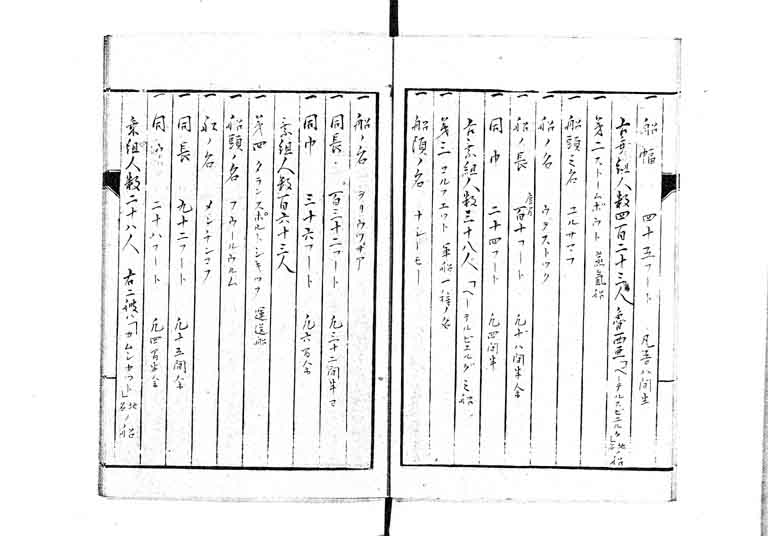 一 船幅 四十五フート 凡七八間半
右乗組人数四百二十三人 魯西亜「ペートルスビエルク」地ノ船
一 第二ストームボウト 蒸氣船
一 船頭ノ名 コルサコフ
一 船ノ名 ウヲストツク
一 船ノ長 百十フート 凡十八間半余
一 同巾 二十四フート 凡四間半
右乗組人数三十八人 「ペートルビエルグ」ノ船
一 第三コルフェット 軍船一種ノ名
一 船頭ノ名 ナシーモー
一 船ノ名 ヲリウツザア
一 同長 百三十二フート 凡二十二間半
一 同巾 三十六フート 凡六間余
乗組人数百六十三人
一 第四タランスポルトシキップ 運送船
一 船頭ノ名 フウールウルム
一 船ノ名 メンチコフ
一 同長 九十二フート 凡十五間余
一 同 二十八フート 凡四間半余
乗組人数二十八人 右二艘ハ「カムシカット」地ノ船